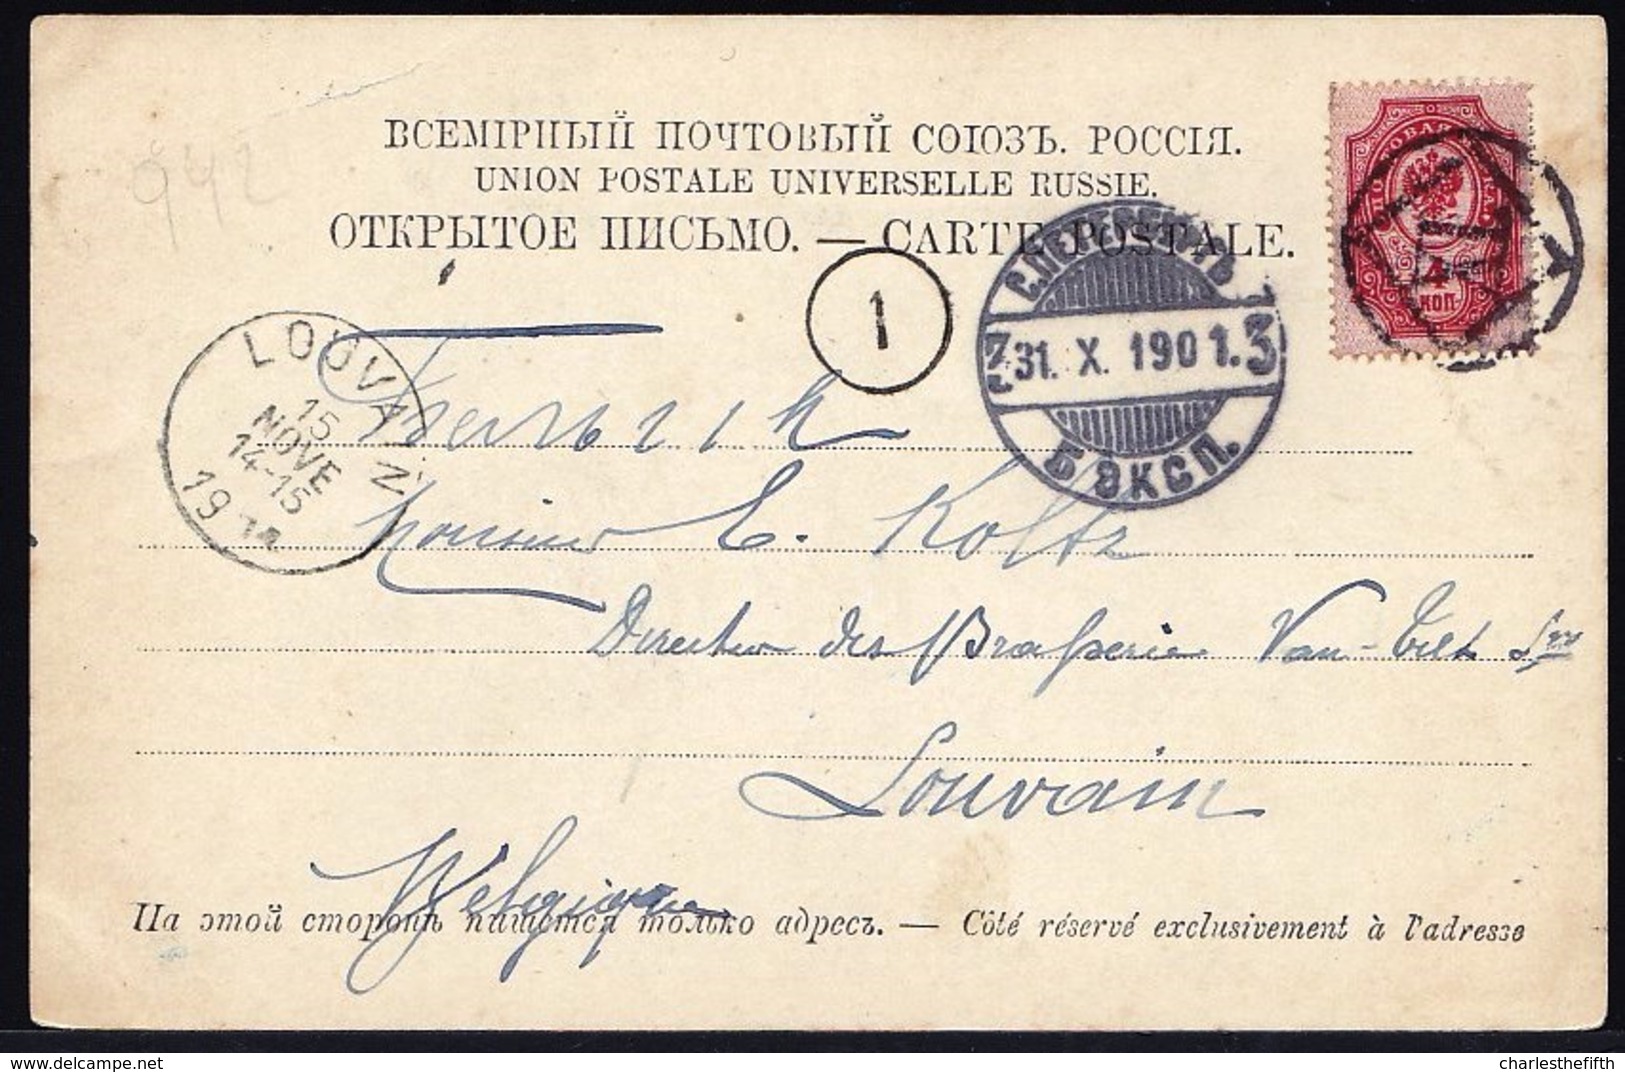 942
ВСЕМІРНЫЙ ПОЧТОВЫЙ СОЮЗЪ. РОССІЯ.
UNION POSTALE UNIVERSELLE RUSSIE.
ОТКРЫТОЕ ПИСЬМО. — CARTE POSTALE.
4
КОП.
1
С.ПЕТЕРБУРГЪ
3 31. X. 1901. 3
Б ЭКСП.
LOUVAIN
15
NOVE
14-15
19
Monsieur E. Koltz
Directeur des Brasserie Van-Tilt Srs
Louvain
Belgique
На этой сторонѣ пишется только адресъ. — Côté réservé exclusivement à l'adresse
charlesthefifth